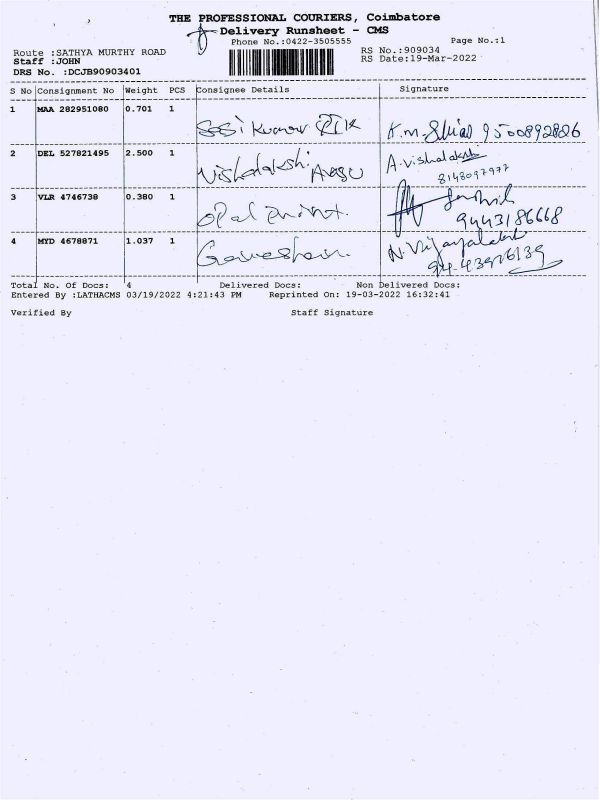 THE PROFESSIONAL COURIERS, Coimbatore
Delivery Runsheet - CMS
Phone No.:0422-3505555 Page No.:1
Route :SATHYA MURTHY ROAD RS No.:909034
Staff :JOHN RS Date:19-Mar-2022
DRS No. :DCJB90903401
S No Consignment No Weight PCS Consignee Details Signature
1 MAA 282951080 0.701 1 Sasikumar K.M. 9500892886
2 DEL 527821495 2.500 1 Vishalakshi A.Vishalakshi
8148097977
3 VLR 4746738 0.380 1 Opal Print.
9443186668
4 MYD 4678871 1.037 1 N.Vijayalakshmi
Total No. Of Docs: 4 Delivered Docs: Non Delivered Docs:
Entered By :LATHACMS 03/19/2022 4:21:43 PM Reprinted On: 19-03-2022 16:32:41
Verified By Staff Signature